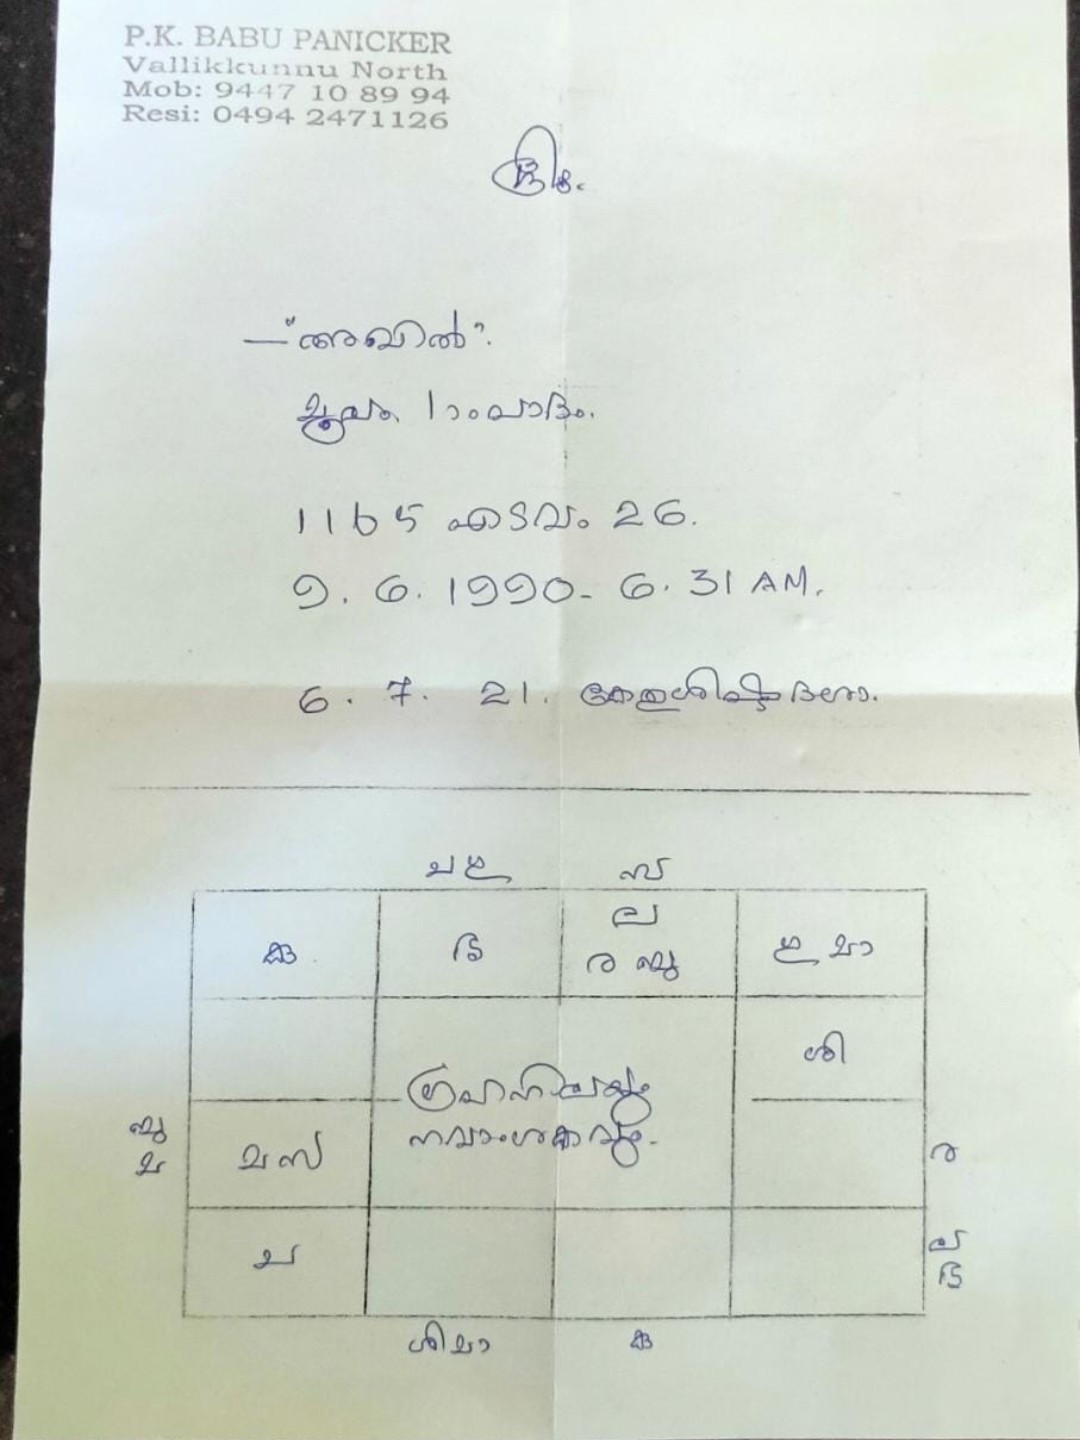 P.K. BABU PANICKER
Vallikkunnu North
Mob: 9447 10 89 94
Resi: 0494 2471126
ശ്രീഃ.
— "അഖിൽ".
മൂലം 1ാംപാദം.
1165 എടവം 26.
9. 6. 1990 - 6. 31 AM.
6. 7. 21. കേതുശിഷ്ടദശാ.
ച ഗു സ
കു ശു ല ഗു മാ
ര ബു
ശി
ഗ്രഹനിലയും
നവാംശകവും.
ബു
മ മ സ ര
ച ല
ശു
ശി മാ കു